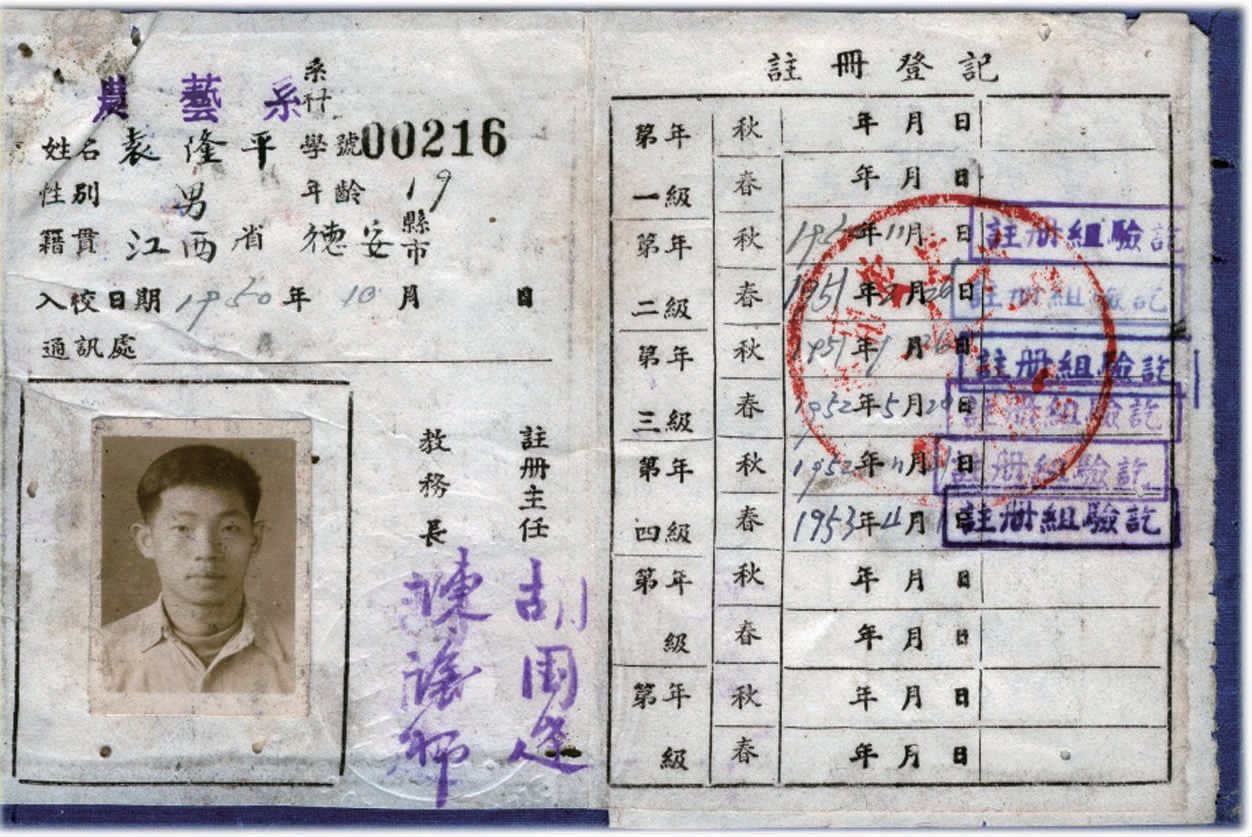 農藝系
系科
姓名 袁隆平 學號00216
性別 男 年齡 19
籍貫 江西省 德安 縣市
入校日期 1950年10月 日
通訊處
教務長
註册主任
胡國
註冊登記
第一年級 秋 年月日
春 年月日
第二年級 秋 年11月日 註册組驗訖
春 1951年月日 註册組驗訖
第三年級 秋 1951年月日 註册組驗訖
春 1952年5月日 註册組驗訖
第四年級 秋 1952年月日 註册組驗訖
春 1953年4月日 註册組驗訖
第年級 秋 年月日
春 年月日
第年級 秋 年月日
春 年月日